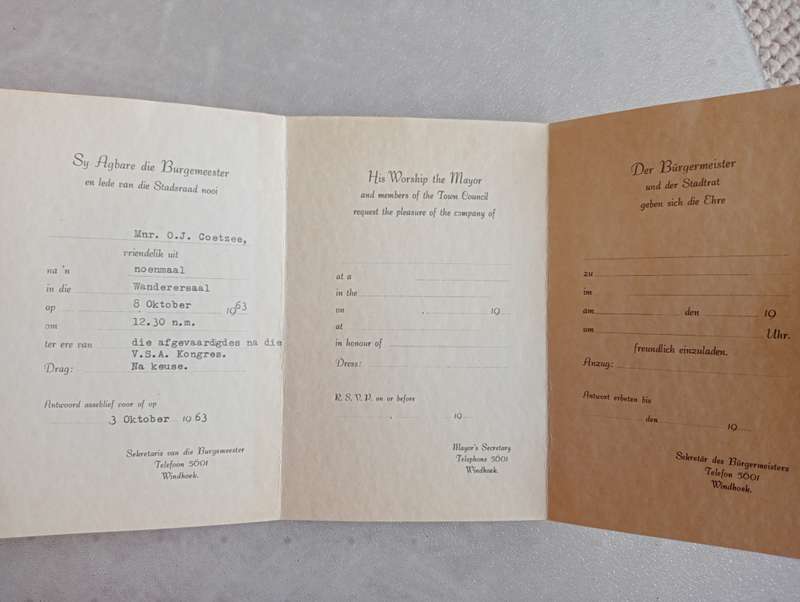 Sy Agbare die Burgemeester
en lede van die Stadsraad nooi
Mnr. O.J. Coetzee,
vriendelik uit
na 'n noenmaal
in die Wandererssaal
op 8 Oktober 1963
om 12.30 n.m.
ter ere van die afgevaardigdes na die
V.S.A. Kongres.
Drag: Na keuse.
Antwoord asseblief voor of op
3 Oktober 1963
Sekretaris van die Burgemeester
Telefoon 5001
Windhoek.
His Worship the Mayor
and members of the Town Council
request the pleasure of the company of
at a
in the
on 19
at
in honour of
Dress:
R. S. V. P. on or before
19
Mayor's Secretary
Telephone 5001
Windhoek.
Der Bürgermeister
und der Stadtrat
geben sich die Ehre
zu
im
am den 19
um Uhr.
freundlich einzuladen.
Anzug:
Antwort erbeten bis
den 19
Sekretär des Bürgermeisters
Telefon 5001
Windhoek.